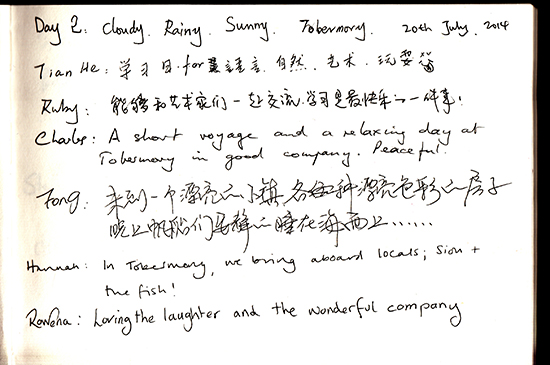 Day 2: Cloudy. Rainy. Sunny. Tobermory. 20th July. 2014
Tian He: 学习日. for 英語言. 自然. 艺术. 玩
Ruby: 能够和艺术家们一起交流.学习是最快乐的一件事!
Charles: A short voyage and a relaxing day at
Tobermory in good company. Peaceful.
Fong: 来到一个漂亮的小镇 各种漂亮色彩的房子
晚上帆船们安静的睡在海面上……
Hannah: In Tobermory, we bring aboard locals; Sion +
the fish!
Rowena: Loving the laughter and the wonderful company